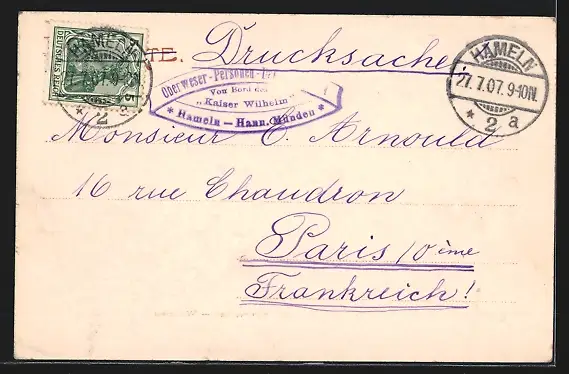 DEUTSCHES REICH
HAMELN
TE. Drucksache
HAMELN
27.7.07. 9-10N.
* 2 a
Oberweser-Personen-
Von Bord des
„Kaiser Wilhelm"
* Hameln — Hann. Münden *
* 2
Monsieur C. Arnould
16 rue Chaudron
Paris 10 ème
Frankreich!